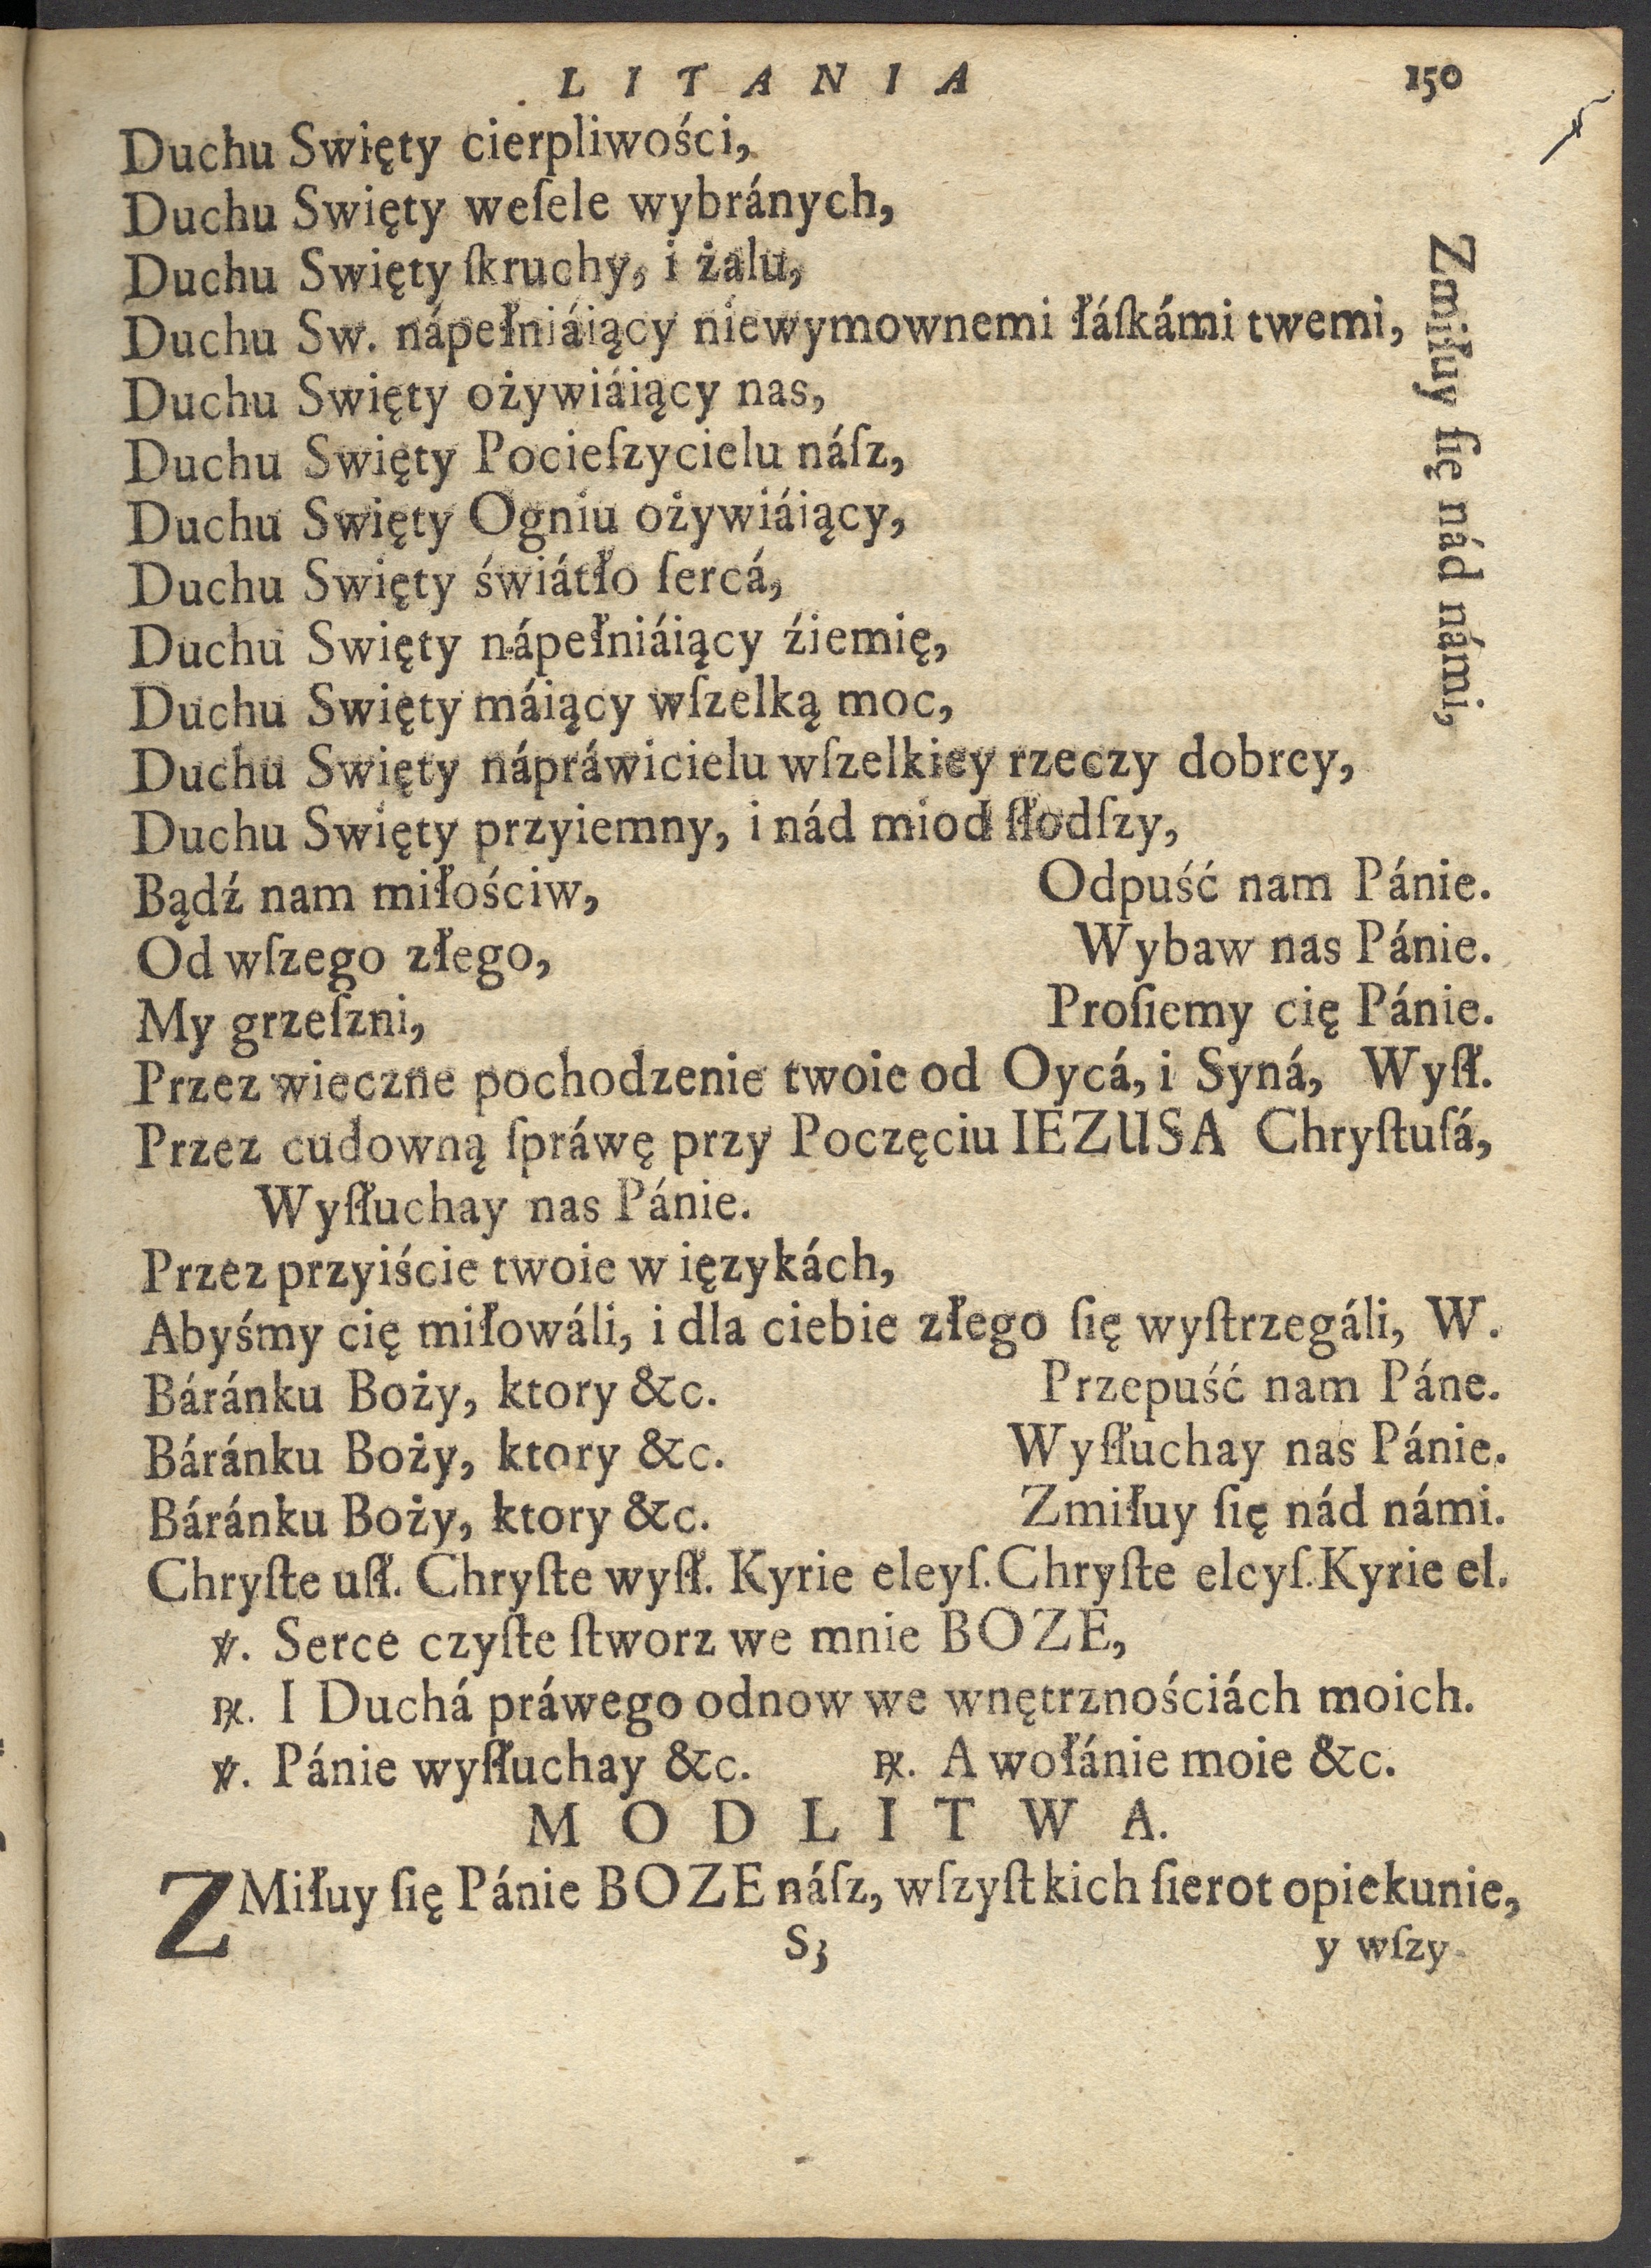 LITANIA 150
Duchu Swięty cierpliwości,
Duchu Swięty weſele wybránych,
Duchu Swięty ſkruchy, i żalu,
Duchu Sw. nápełniáiący niewymownemi łáſkámi twemi,
Duchu Swięty ożywiáiący nas,
Duchu Swięty Pocieſzycielu náſz,
Duchu Swięty Ogniu ożywiáiący,
Duchu Swięty świátło ſercá,
Duchu Swięty nápełniáiący źiemię,
Duchu Swięty máiący wſzelką moc,
Duchu Swięty nápráwicielu wſzelkiey rzeczy dobrey,
Duchu Swięty przyiemny, i nád miod ſłodſzy,
Zmiłuy ſię nád námi,
Bądź nam miłościw, Odpuść nam Pánie.
Od wſzego złego, Wybaw nas Pánie.
My grzeſzni, Proſiemy cię Pánie.
Przez wieczne pochodzenie twoie od Oycá, i Syná, Wyſł.
Przez cudowną ſpráwę przy Poczęciu IEZUSA Chryſtuſá,
Wyſłuchay nas Pánie.
Przez przyiście twoie w ięzykách,
Abyśmy cię miłowáli, i dla ciebie złego ſię wyſtrzegáli, W.
Báránku Boży, ktory &c. Przepuść nam Páne.
Báránku Boży, ktory &c. Wyſłuchay nas Pánie.
Báránku Boży, ktory &c. Zmiłuy ſię nád námi.
Chryſte uſł. Chryſte wyſł. Kyrie eleyſ. Chryſte eleyſ. Kyrie el.
℣. Serce czyſte ſtworz we mnie BOZE,
℟. I Duchá práwego odnow we wnętrznościách moich.
℣. Pánie wyſłuchay &c. ℟. A wołánie moie &c.
MODLITWA.
ZMiłuy ſię Pánie BOZE náſz, wſzyſtkich ſierot opiekunie,
S3 y wſzy-